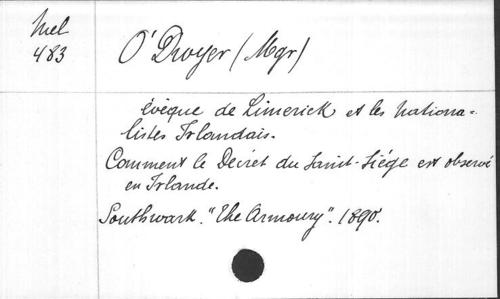 Mel
483
O'Dwyer (Mgr)
évêque de Limerick et les nationa=
listes Irlandais.
Comment le Décret du Saint-Siége est observé
en Irlande.
Southwark. "The Armoury". 1890.